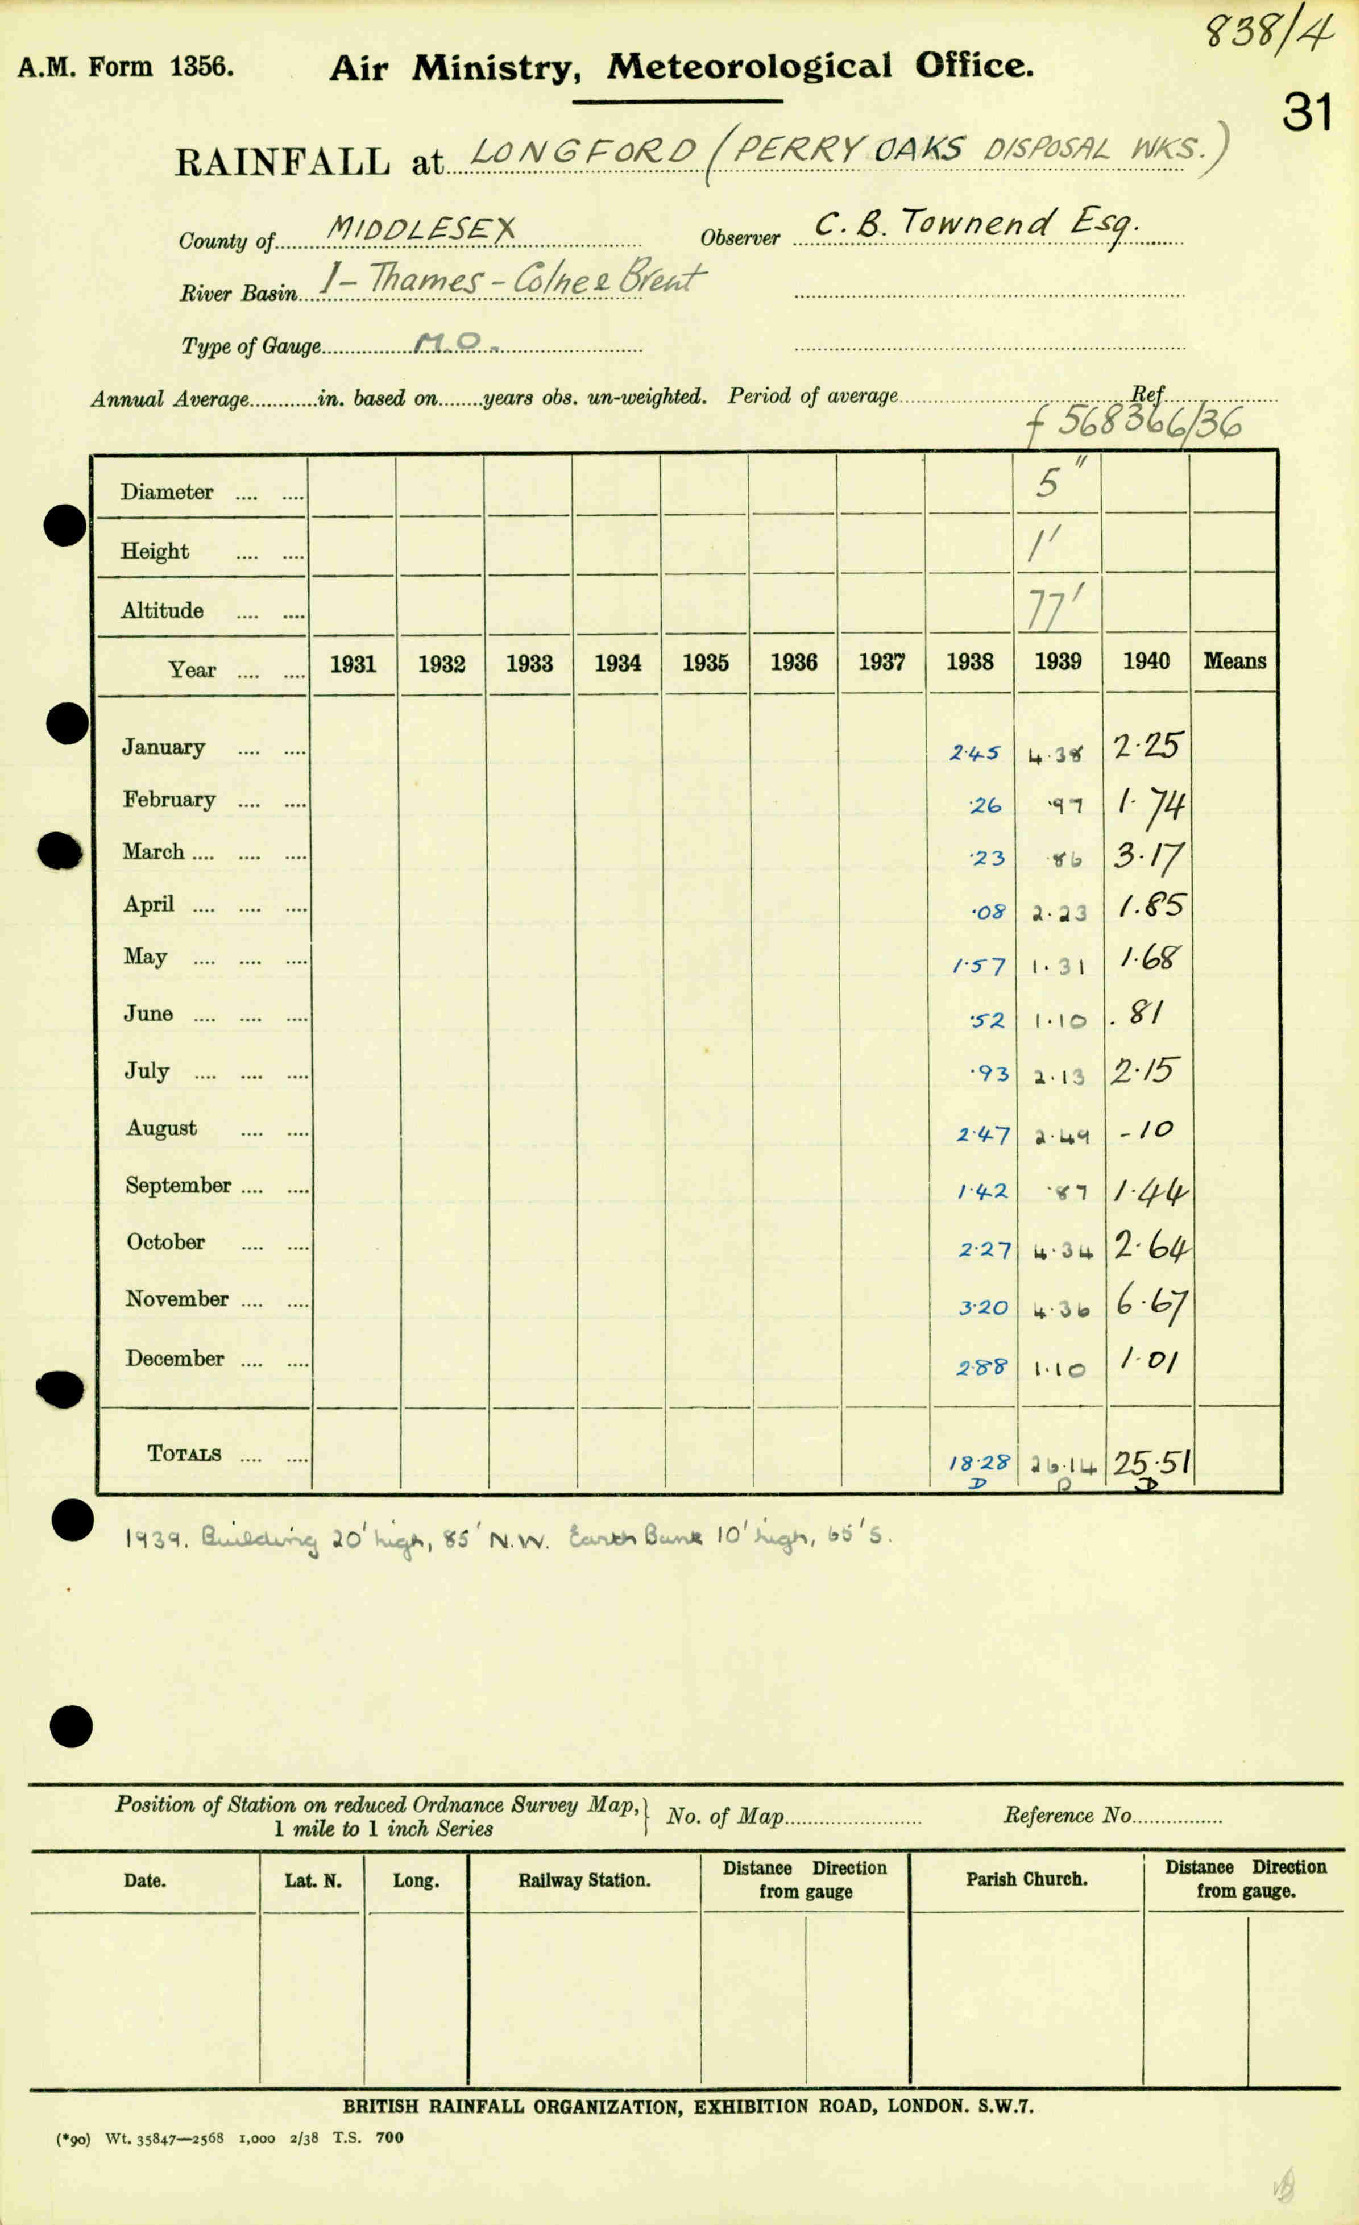 838/4
A.M. Form 1356. Air Ministry, Meteorological Office.
31
RAINFALL at LONGFORD (PERRY OAKS DISPOSAL WKS.)
County of MIDDLESEX Observer C. B. Townend Esq.
River Basin 1 - Thames - Colne & Brent
Type of Gauge M.O.
Annual Average in. based on years obs. un-weighted. Period of average Ref
f 568366/36
Diameter 5"
Height 1'
Altitude 77'
Year 1931 1932 1933 1934 1935 1936 1937 1938 1939 1940 Means
January 2·45 4·38 2·25
February ·26 ·97 1·74
March ·23 ·86 3·17
April ·08 2·23 1.85
May 1·57 1·31 1·68
June ·52 1·10 .81
July ·93 2·13 2·15
August 2·47 2·49 -10
September 1·42 ·87 1·44
October 2·27 4·34 2·64
November 3·20 4·36 6·67
December 2·88 1·10 1·01
TOTALS 18·28 26·14 25·51
D D D
1939. Building 20' high, 85' N.W. Earth Bank 10' high, 65' S.
Position of Station on reduced Ordnance Survey Map, } No. of Map Reference No
1 mile to 1 inch Series
Date. Lat. N. Long. Railway Station. Distance Direction from gauge Parish Church. Distance Direction from gauge.
BRITISH RAINFALL ORGANIZATION, EXHIBITION ROAD, LONDON. S.W.7.
(*90) Wt. 35847—2568 1,000 2/38 T.S. 700